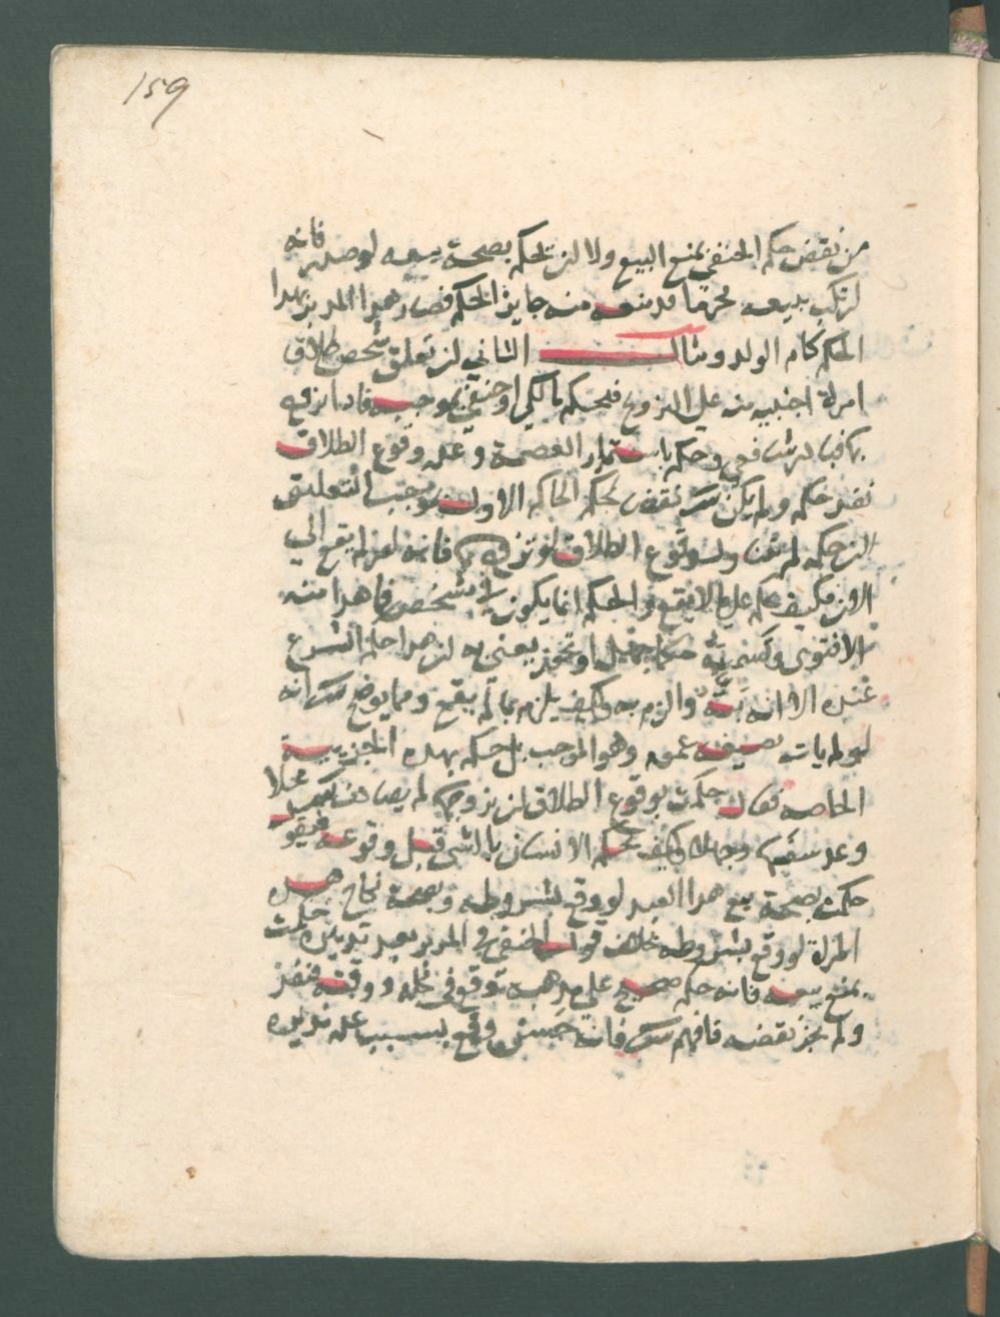 159
من نقض حكم الحنفي بمنع البيع ولا ان يحكم بصحة بيعه لو صدر فانه
ارتكب ببيعه محرما قد منعه منه جايز الحكم فصار هذا المدبر بهذا
الحكم كام الولد ومثال الثاني ان تعلق شخص طلاق
امراة اجنبيه منه علي التزوج فيحكم مالكي او حنفي بموجبه فاذا ترفع
بها لشافعي وحكم باستمرار العصمة وعدم وقوع الطلاق
نفذ حكمه ولم يكن نقض لحكم الحاكم الاول بموجب التعليق
ان حكمه لم وقوع الطلاق لو تزوج بها فانه امر لم يقع الي
الان فكيف يحكم علي ما لم يقع والحكم انما يكون في شخص فما هذا منه
الا فتوي وتسميته حكما جهل او تجوز يعني به ان هذا حكم الشرع
عنده الا انه بته والزم به وكيف يلزم بما لم يقع ومما يوضح انه
لو لم يات بصيغة عموم وهو الموجب بل حكم بهذه الجزيية
الخاصة فقال حكمت بوقوع الطلاق ان تزوجها لم يصادف محلا
وعد سفها وجهلا وكيف يحكم الانسان بالشي قبل وقوعه فيقول
حكمت بصحة بيع هذا العبد لو وقع بشروطه وبصحة نكاح هذه
المراة لو وقع بشروطه بخلاف قول الحنفي في المدبر بعد تدبيره حكمت
بمنع بيعه فانه حكم صحيح علي مذهبه توقع في محله ووقته فنفذ
ولم يجز نقضه فافهم فانه وقع بسبب عدم تدبره